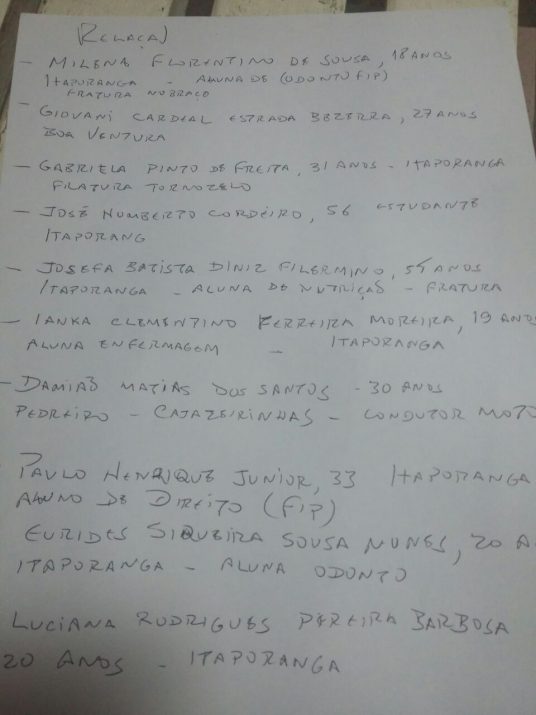 RELAÇAJ
- MILENA FLORENTINO DE SOUSA, 18 ANOS
ITAPORANGA - ALUNA DE (ODONTO FIP)
FRATURA NO BRAÇO
- GIOVANI CARDEAL ESTRADA BEZERRA, 27 ANOS
BOA VENTURA
- GABRIELA PINTO DE FREITA, 31 ANOS - ITAPORANGA
FILATURA TORNOZELO
- JOSÉ HUMBERTO CORDEIRO, 56 ESTUDANTE
ITAPORANG
- JOSEFA BATISTA DINIZ FILERMINO, ANOS
ITAPORANGA - ALUNA DE NUTRIÇÃO - FRATURA
- IANKA CLEMENTINO FERREIRA MOREIRA, 19 ANOS
ALUNA ENFERMAGEM - ITAPORANGA
- DAMIAÕ MATIAS DOS SANTOS - 30 ANOS
PEDREIRO - CAJAZEIRINHAS - CONDUTOR MOTO
PAULO HENRIQUE JUNIOR, 33 ITAPORANGA
ALUNO DE DIREITO (FIP)
EURIDES SIQUEIRA SOUSA NUNES, 20 A
ITAPORANGA - ALUNA ODONTO
LUCIANA RODRIGUES PEREIRA BARBOSA
20 ANOS - ITAPORANGA